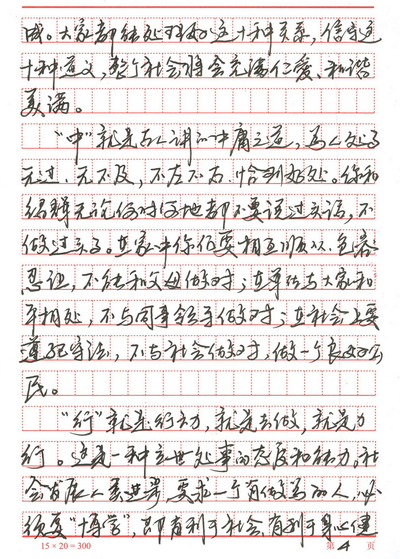 成。大家都能处理好这十种关系，信守这
十种道义，整个社会将会充满仁爱、和谐
美满。
“中”就是古人讲的中庸之道，为人处事
无过、无不及，不左不右、恰到好处。你和
绍群无论何时何地都不要说过头话，不
做过头事。在家中你们要相互顺从、包容
忍让，不能和父母做对；在单位与大家和
平相处，不与同事领导做对；在社会上要
遵纪守法，不与社会做对，做一个良好公
民。
“行”就是行动，就是去做，就是力
行。这是一种立世处事的态度和能力。社
会发展人类进步，要求一个有作为的人，必
须要“博学”，即有利于社会，有利于身心健
15×20=300
第 4 页